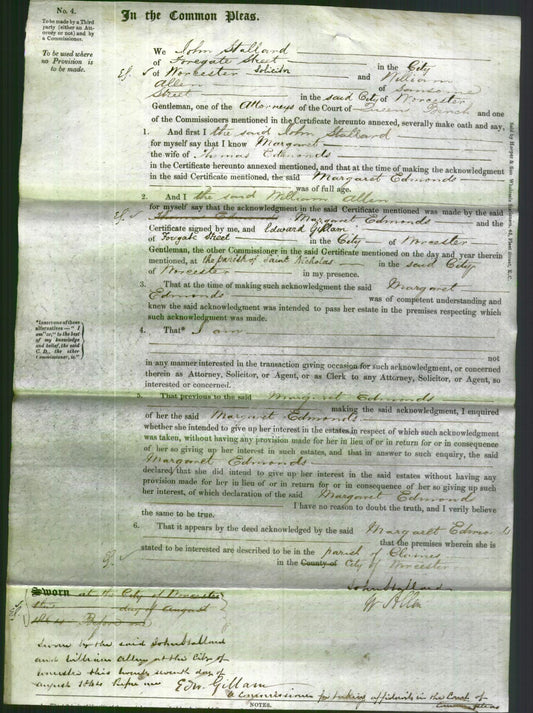 No. 4.
To be made by a Third
party (either an Attorney or not) and by
a Commissioner.
To be used where
no Provision is
to be made.
In the Common Pleas.
We John Stallard
of Foregate Street in the City
of Worcester Solicitor and William
Allen of Sansome
Street in the said City of Worcester
Gentleman, one of the Attorneys of the Court of Queens Bench and one
of the Commissioners mentioned in the Certificate hereunto annexed, severally make oath and say,
1. And first I the said John Stallard
for myself say that I know Margaret
the wife of Thomas Edmonds
in the Certificate hereunto annexed mentioned, and that at the time of making the acknowledgment
in the said Certificate mentioned, the said Margaret Edmonds
was of full age.
2. And I the said William Allen
for myself say that the acknowledgment in the said Certificate mentioned was made by the said
Margaret Edmonds and the
Certificate signed by me, and Edward Gillam
of Forgate Street in the City of Worcester
Gentleman, the other Commissioner in the said Certificate mentioned on the day and year therein
mentioned, at the parish of Saint Nicholas in the said City
of Worcester in my presence.
3. That at the time of making such acknowledgment the said Margaret
Edmonds was of competent understanding and
knew the said acknowledgment was intended to pass her estate in the premises respecting which
such acknowledgment was made.
*Insert one of these
alternatives—"I
am" or, "to the best
of my knowledge
and belief, the said
C. D., the other
Commissioner, is."
4. That* I am
not
in any manner interested in the transaction giving occasion for such acknowledgment, or concerned
therein as Attorney, Solicitor, or Agent, or as Clerk to any Attorney, Solicitor, or Agent, so
interested or concerned.
5. That previous to the said Margaret Edmonds
making the said acknowledgment, I enquired
of her the said Margaret Edmonds
whether she intended to give up her interest in the estates in respect of which such acknowledgment
was taken, without having any provision made for her in lieu of or in return for or in consequence
of her so giving up her interest in such estates, and that in answer to such enquiry, the said
Margaret Edmonds
declared that she did intend to give up her interest in the said estates without having any
provision made for her in lieu of or in return for or in consequence of her so giving up such
her interest, of which declaration of the said Margaret Edmonds
I have no reason to doubt the truth, and I verily believe
the same to be true.
6. That it appears by the deed acknowledged by the said Margaret Edmonds
that the premises wherein she is
stated to be interested are described to be in the parish of Claines
in the County of City of Worcester
John Stallard
W Allen
Sworn at the City of Worcester
the day of August
Before me
Sworn by the said John Stallard
and William Allen at the City of
Worcester this twenty seventh day of
August 1844 Before me
Edw. Gillam
a Commissioner for taking affidavits in the Court of
Common pleas
NOTES.